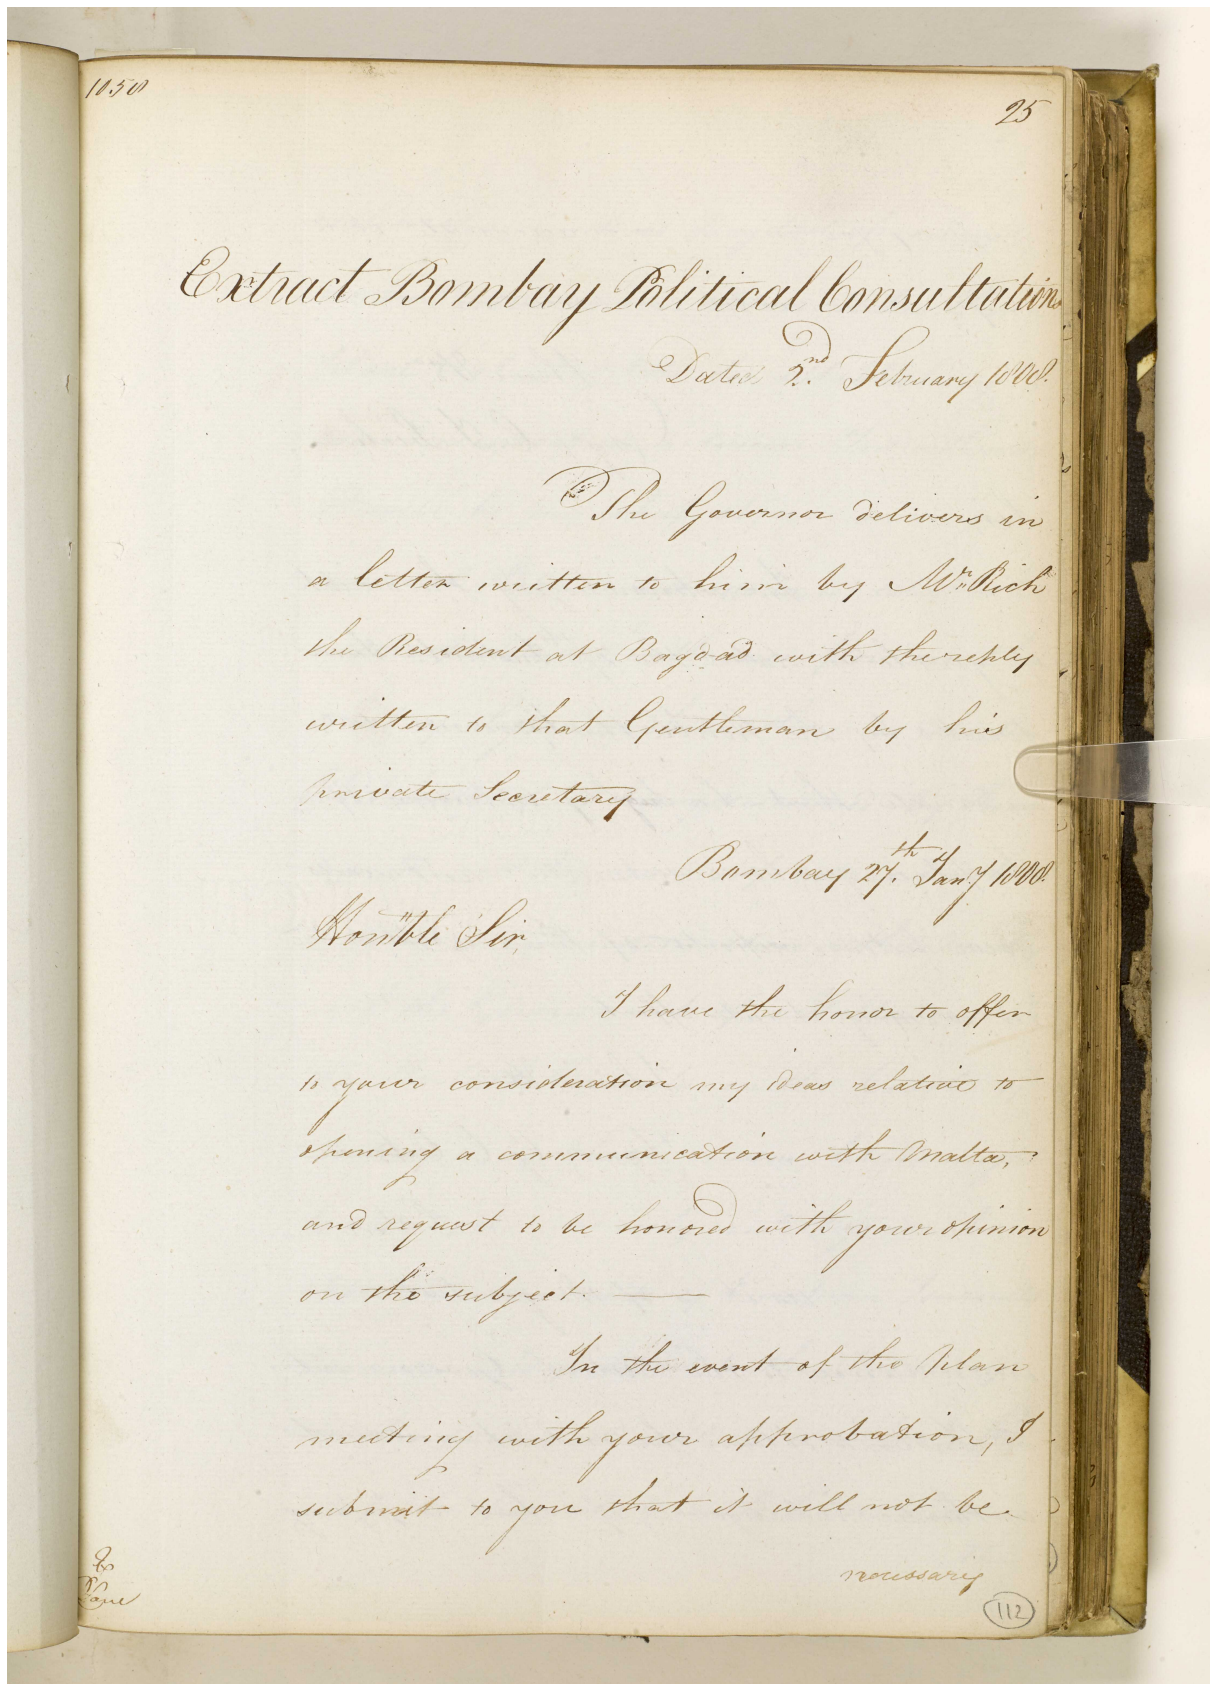 1058
25
Extract Bombay Political Consultations
Dated 2nd. February 1808.
The Governor delivers in
a letter written to him by Mr. Rich
the Resident at Bagdad with the reply
written to that Gentleman by his
private Secretary
Bombay 27th. Jany 1808.
Hon'ble Sir,
I have the honor to offer
to your consideration my ideas relative to
opening a communication with Malta,
and request to be honored with your opinion
on the subject. —
In the event of the plan
meeting with your approbation, I
submit to you that it will not be
necessary
112